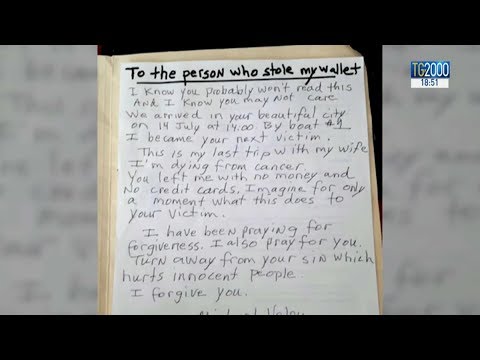 TG2000
18:51
To the person who stole my wallet
I know you probably won't read this
And I know you may Not care
We arrived in your beautiful city
on 14 July at 14:00. By boat #9
I became your next victim.
This is my last trip with my wife
I'm dying from cancer.
You left me with no money and
No credit cards. Imagine for only
a moment what this does to
your victim.
I have been praying for
forgiveness. I also pray for you.
Turn away from your SIN which
hurts innocent people.
I forgive you.
Michael